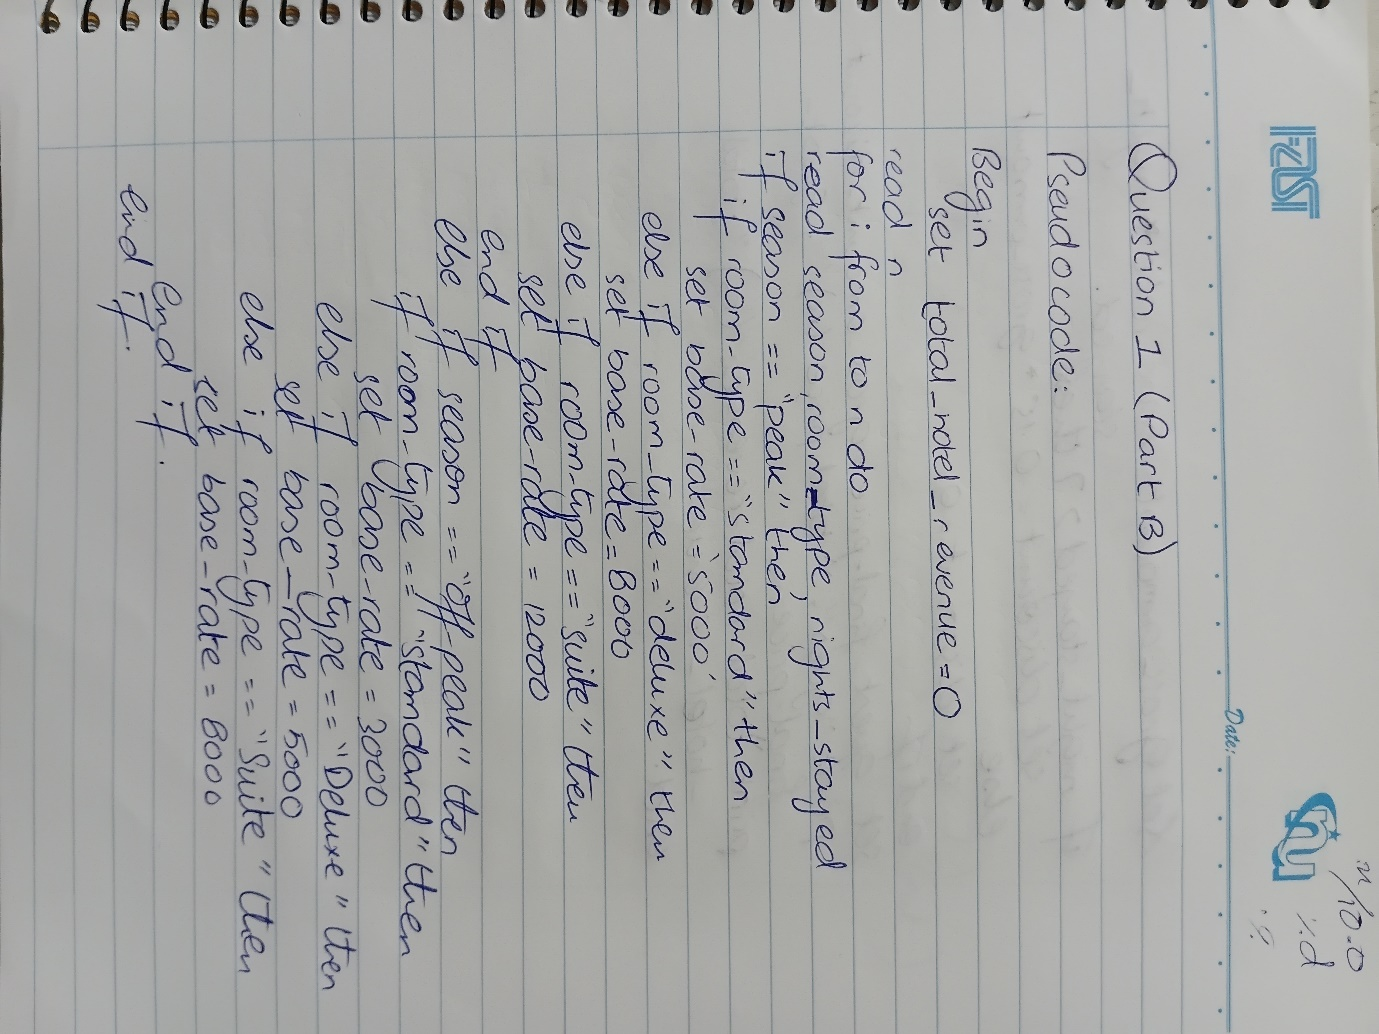 FAST
Date:
Question 1 (Part B)
Pseudocode:
Begin
set total_hotel_revenue = 0
read n
for i from to n do
read season, room-type, nights_stayed
if season == "peak" then
if room-type == "standard" then
set base-rate = 5000
else if room_type == "deluxe" then
set base-rate = 8000
else if room-type == "suite" then
set base-rate = 12000
end if
else if season == "off peak" then
if room-type == "standard" then
set base-rate = 3000
else if room-type == "Deluxe" then
set base-rate = 5000
else if room-type == "Suite" then
set base-rate = 8000
end if.
end if.